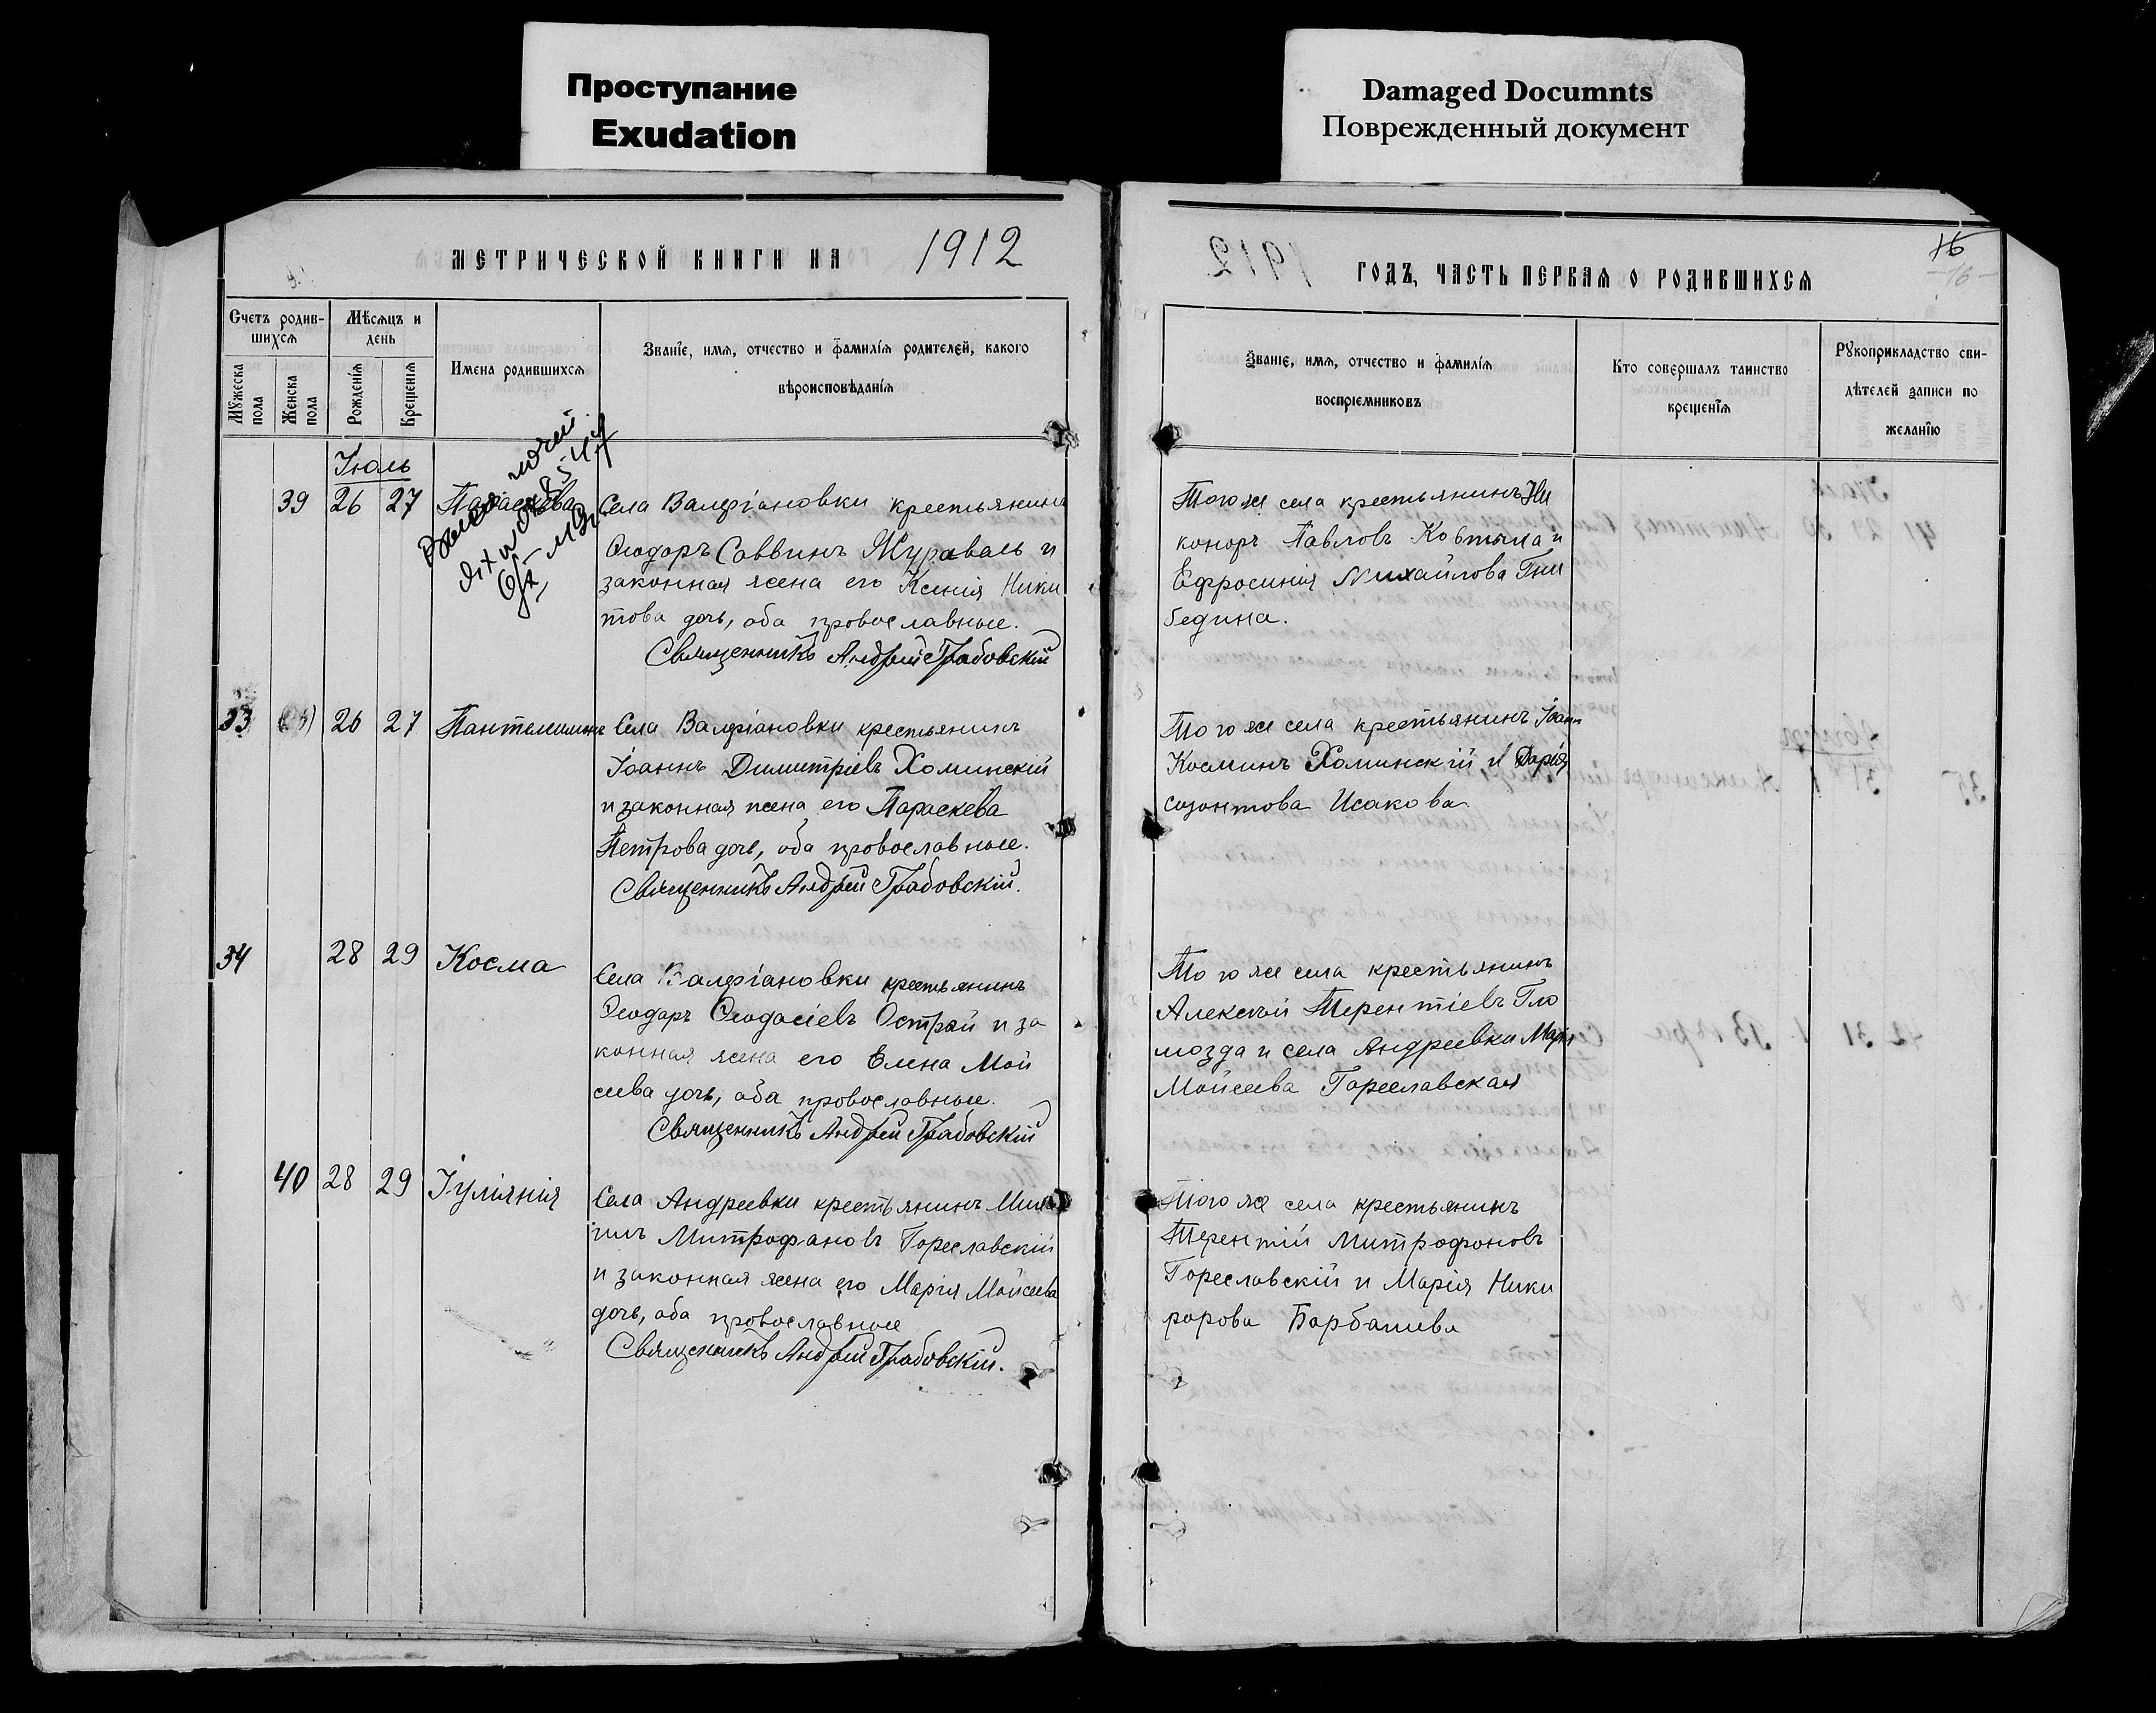 Проступание
Exudation
Damaged Documnts
Поврежденный документ
МЕТРИЧЕСКОЙ КНИГИ НА 1912
Счетъ родив-
шихся
Мѣсяцъ и
день
Мужеска
пола
Женска
пола
Рожденія
Крещенія
Имена родившихся
Званіе, имя, отчество и фамилія родителей, какого
вѣроисповѣданія
Іюль
39 26 27 Параскева
Села Валеріановки крестьянинъ
Ѳеодоръ Саввинъ Журавель и
законная жена его Ксенія Ники
това дочь, оба православные.
Священникъ Андрей Грабовскій
33 26 27 Пантелеимонъ
Села Валеріановки крестьянинъ
Іоаннъ Димитріевъ Хоминскій
и законная жена его Параскева
Петрова дочь, оба православные.
Священникъ Андрей Грабовскій.
34 28 29 Косма
Села Валеріановки крестьянинъ
Ѳеодоръ Ѳеодосіевъ Острый и за
конная жена его Елена Мои
сеева дочь, оба православные.
Священникъ Андрей Грабовскій
40 28 29 Іуліянія
Села Андреевки крестьянинъ Миха
илъ Митрофановъ Гореславскій
и законная жена его Марія Моисеева
дочь, оба православные
Священникъ Андрей Грабовскій.
16
ГОДЪ, ЧАСТЬ ПЕРВАЯ О РОДИВШИХСЯ
Званіе, имя, отчество и фамилія
воспріемниковъ
Кто совершалъ таинство
крещенія
Рукоприкладство сви-
дѣтелей записи по
желанію
Того же села крестьянинъ Ни
каноръ Павловъ Ковтыла и
Ефросинія Михайлова Гни
бедина.
Того же села крестьянинъ Іоаннъ
Косминъ Хоминскій и Дарія
Созонтова Исакова.
Того же села крестьянинъ
Алексѣй Терентіевъ Гло
мозда и села Андреевки Марія
Моисеева Гореславская
Того же села крестьянинъ
Терентій Митрофоновъ
Гореславскій и Марія Ники
форова Барбашева